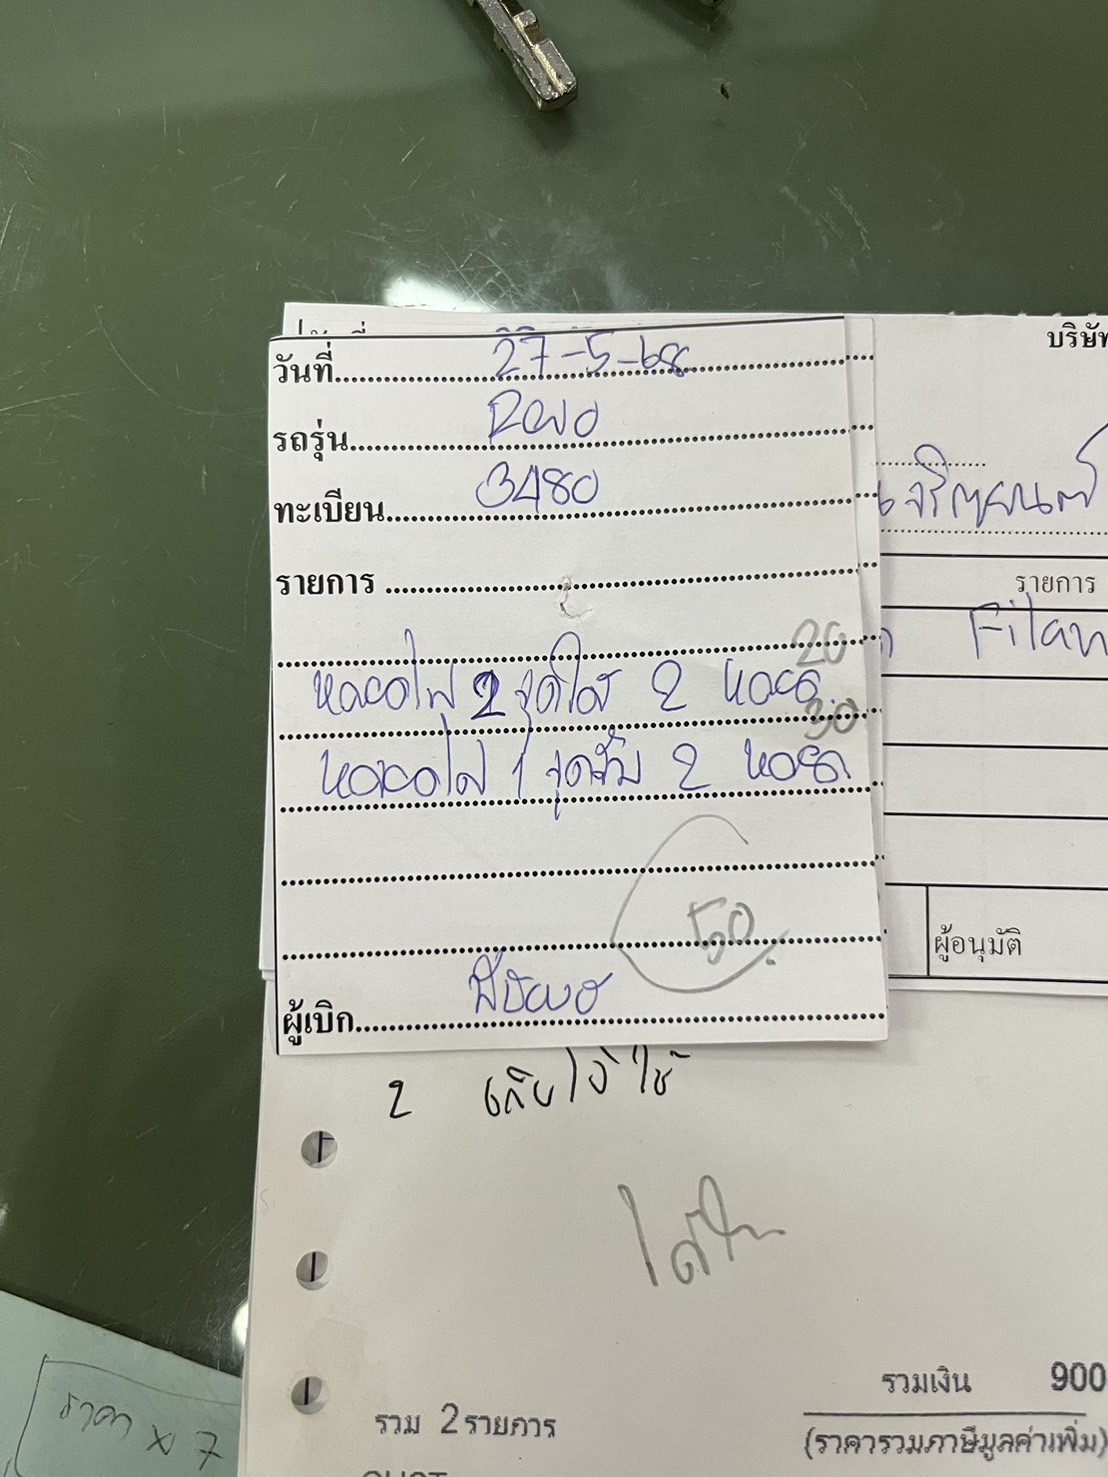 บริษัท
วันที่ 27-5-68
รถรุ่น Revo
ทะเบียน 3480
รายการ
รายการ
20
Filan
หลอดไฟ 2 จุดใส 2 หลอด
30
หลอดไฟ 1 จุดส้ม 2 หลอด
50
ผู้อนุมัติ
ผู้เบิก
2
รวมเงิน 900
รวม 2รายการ
(ราคารวมภาษีมูลค่าเพิ่ม)
ราคา x 7